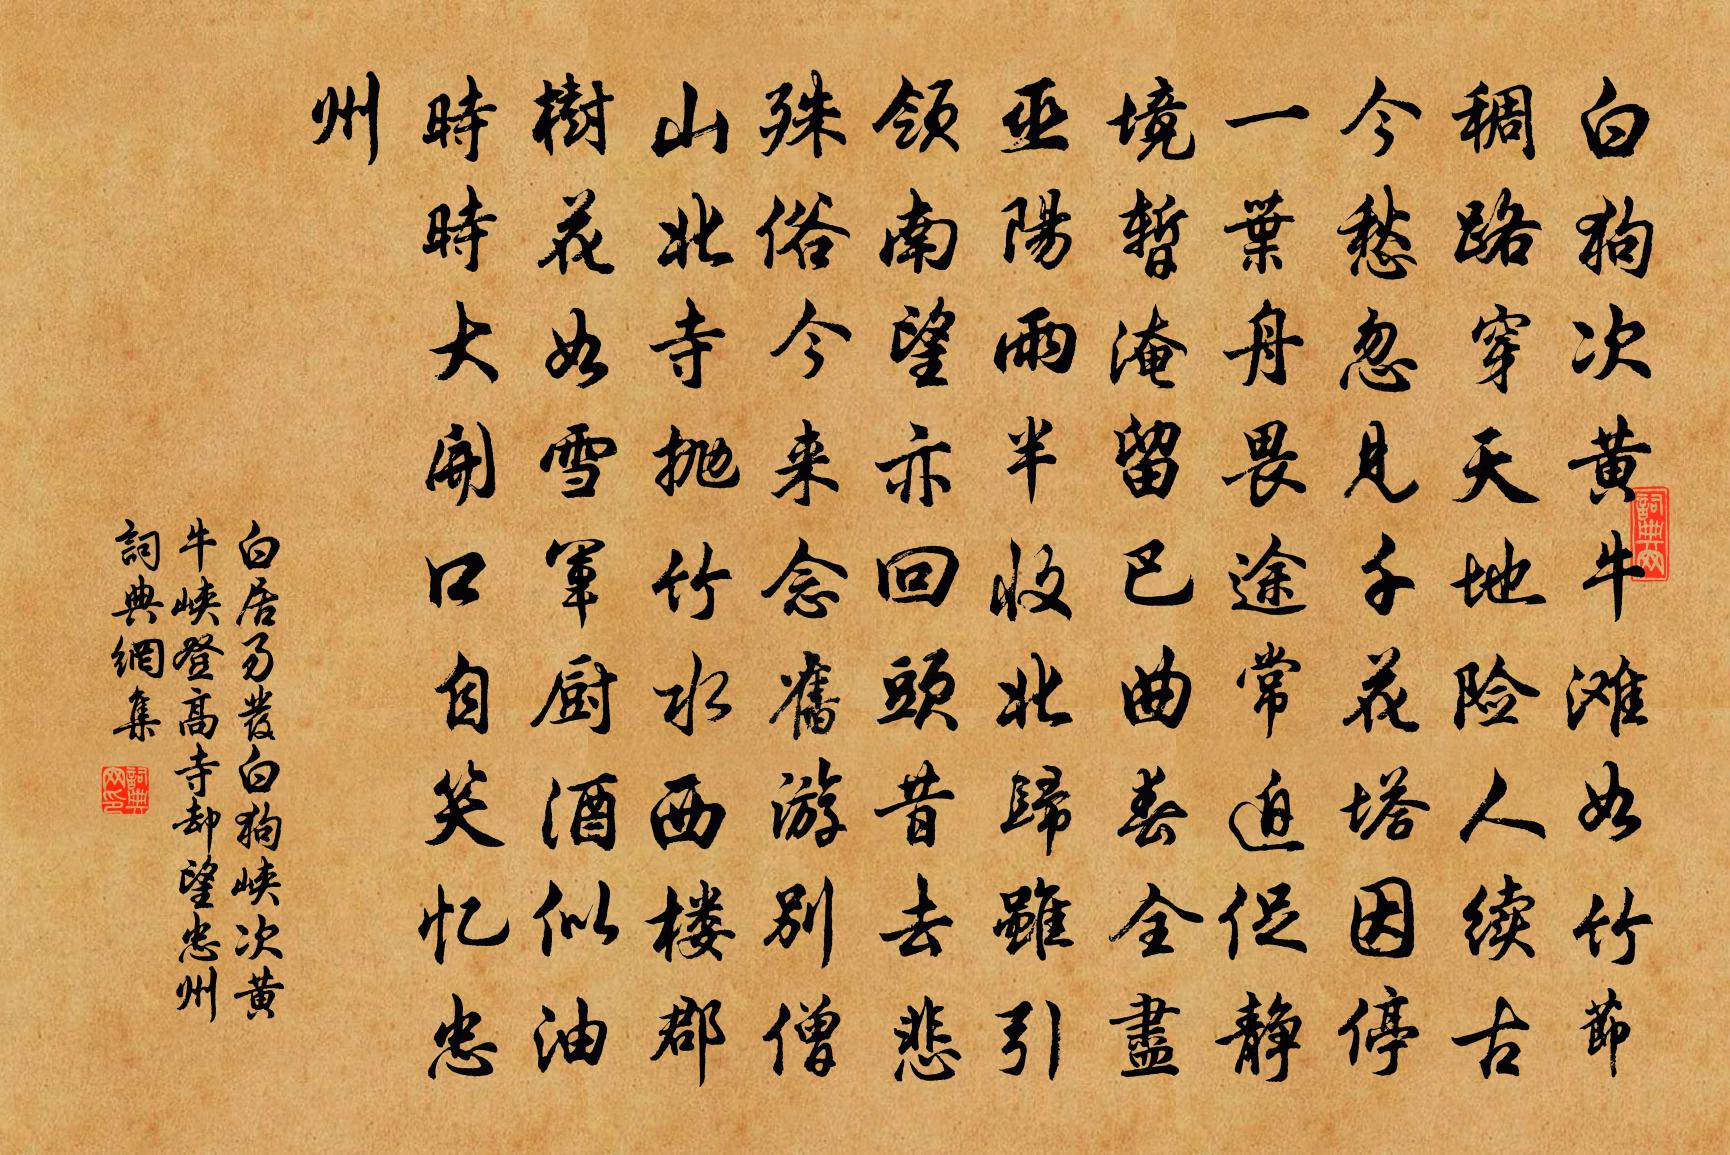 白狗次黄牛滩如竹節
稠路穿天地险人续古
今愁忽見千花塔因停
一葉舟畏途常迫促静
境暫淹留巴曲春全盡
巫陽雨半收北歸雖引
领南望亦回頭昔去悲
殊俗今来念舊游别僧
山北寺抛竹水西楼郡
樹花如雪軍厨酒似油
時時大開口自笑忆忠
州
白居易發白狗峡次黄
牛峡登高寺却望忠州
詞典網集
詞典网
詞典网印